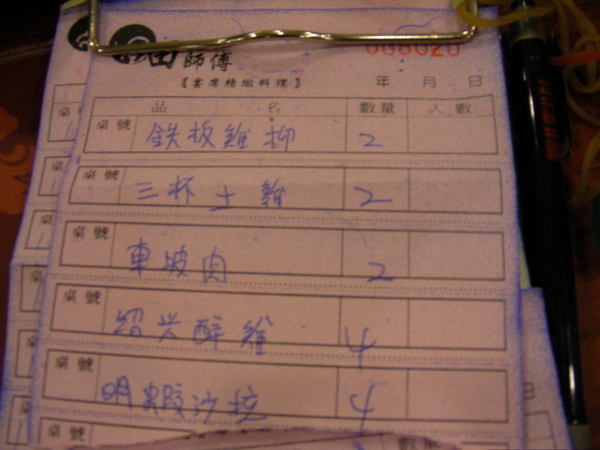 師傅
008020
【宴席精緻料理】 年 月 日
品 名 數量 人數
桌號 鉄板雞柳 2
桌號 三杯土雞 2
桌號 東坡肉 2
桌號 紹兴醉雞 4
桌號 明蝦沙拉 4
桌號
數量